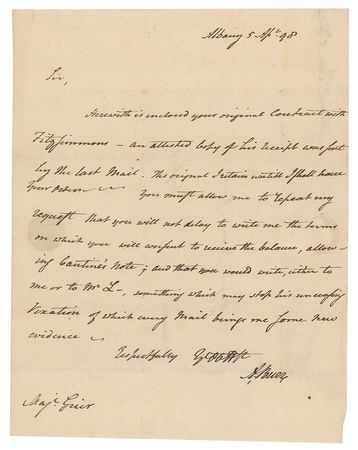 Albany 5 Ap.l 98
Sir,
Herewith is inclosed your original Contract with
Fitzsimmons – an attested copy of his receipt was sent
by the last Mail. The original I retain untill I shall have
your orders – You must allow me to repeat my
request that you will not delay to write me the terms
on which you will consent to receive the balance, allow-
ing Cantine's Note; and that you would write, either to
me or to Mr L–, something which may stop his unceasing
Vexation of which every Mail brings me some new
evidence –
respectfully
A, Burr
Maj.r